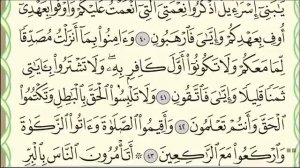 يَٰبَنِىٓ إِسْرَٰٓءِيلَ ٱذْكُرُوا۟ نِعْمَتِىَ ٱلَّتِىٓ أَنْعَمْتُ عَلَيْكُمْ وَأَوْفُوا۟ بِعَهْدِىٓ
أُوفِ بِعَهْدِكُمْ وَإِيَّٰىَ فَٱرْهَبُونِ ٤٠ وَءَامِنُوا۟ بِمَآ أَنزَلْتُ مُصَدِّقًا
لِّمَا مَعَكُمْ وَلَا تَكُونُوٓا۟ أَوَّلَ كَافِرٍۭ بِهِۦ وَلَا تَشْتَرُوا۟ بِـَٔايَٰتِى
ثَمَنًا قَلِيلًا وَإِيَّٰىَ فَٱتَّقُونِ ٤١ وَلَا تَلْبِسُوا۟ ٱلْحَقَّ بِٱلْبَٰطِلِ وَتَكْتُمُوا۟
ٱلْحَقَّ وَأَنتُمْ تَعْلَمُونَ ٤٢ وَأَقِيمُوا۟ ٱلصَّلَوٰةَ وَءَاتُوا۟ ٱلزَّكَوٰةَ
وَٱرْكَعُوا۟ مَعَ ٱلرَّٰكِعِينَ ٤٣ أَتَأْمُرُونَ ٱلنَّاسَ بِٱلْبِرِّ